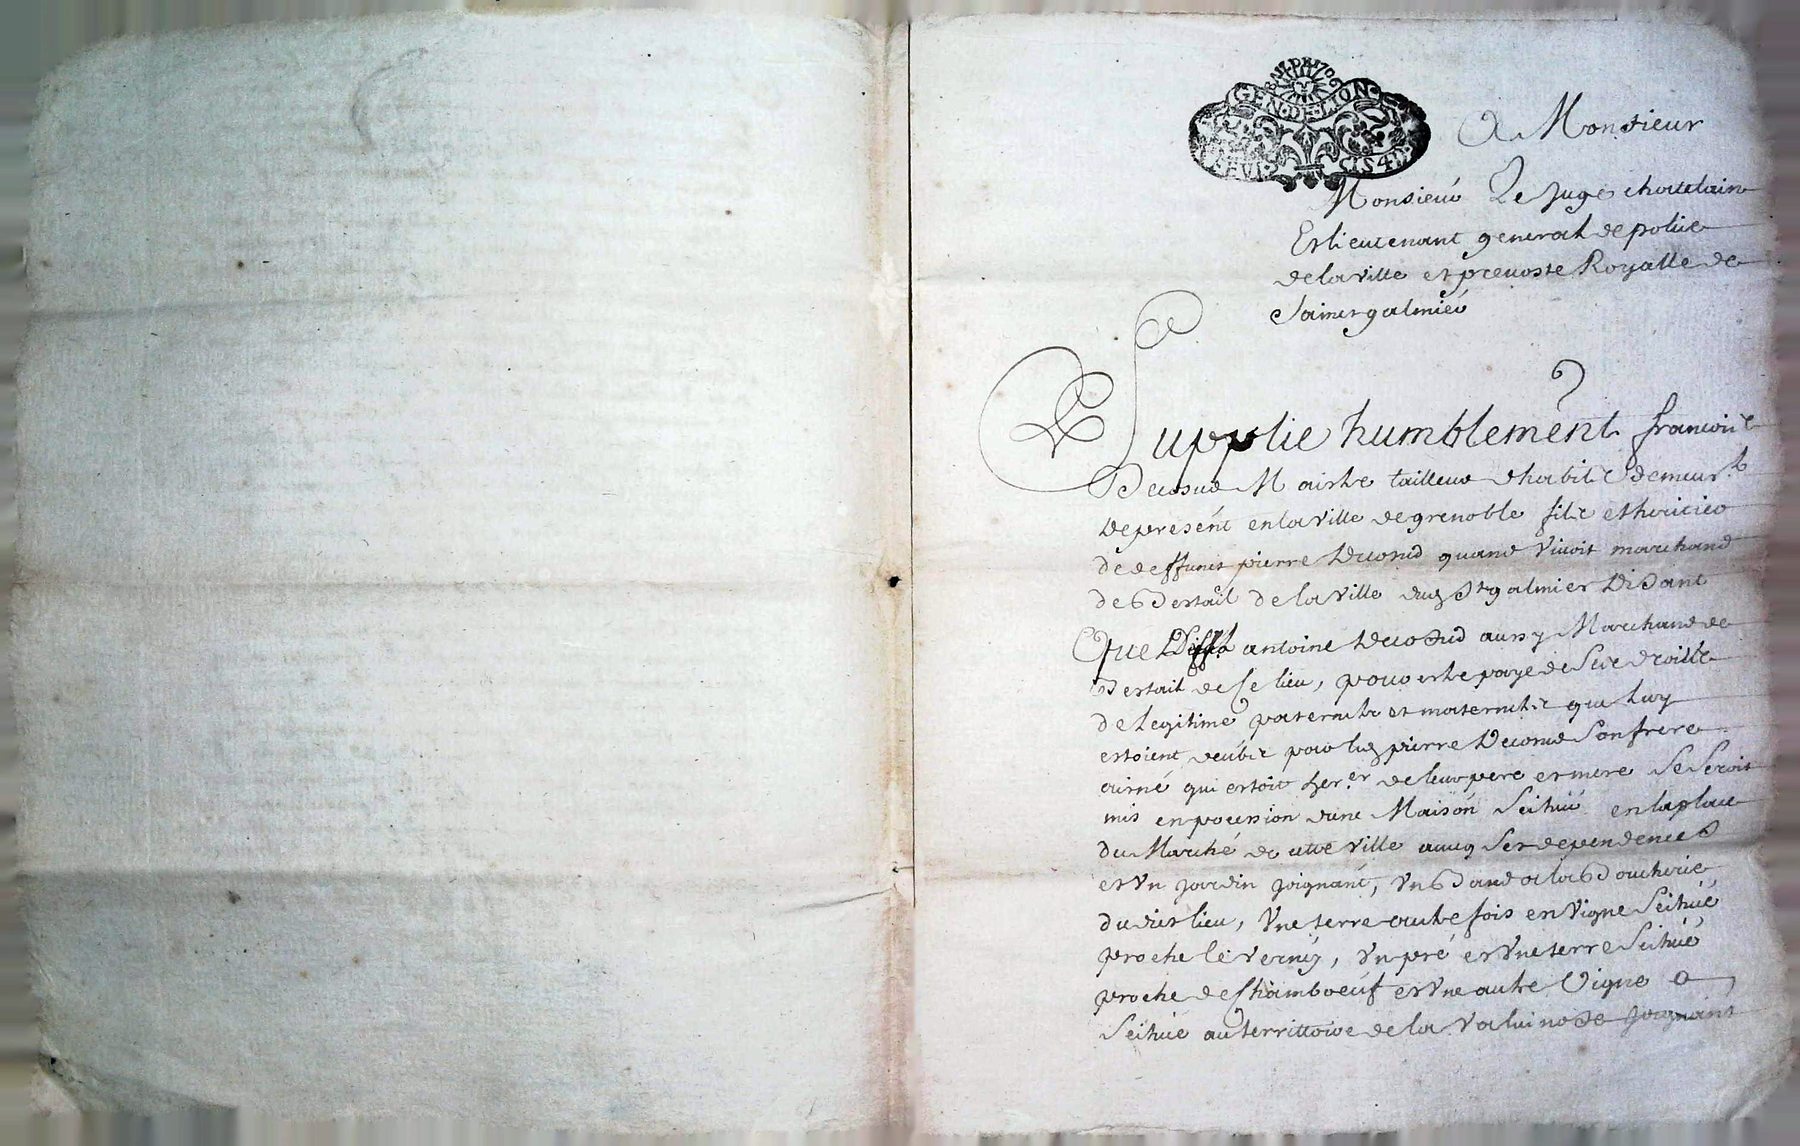 BAIL DE 1706
GEN DE LION
A Monsieur
Monsieur Le Juge chatelain
Et lieutenant general de police
de la ville et prevoste Royalle de
Saint galmier
Supplie humblement francois
Decosud Maistre tailleur d'habits demeurt
de present en la ville de grenoble fils et heritier
de deffunct pierre Decosud quand vivoit marchand
de Bestail de la ville dud St galmier Disant
Que antoine Decosud aussy Marchand de
Bestail de Ce lieu, pour estre payé de Ses droitts
de legitime paternels et maternels que luy
estoient deubs par led pierre Decosud Son frere
aisné qui estoit her.er de leur pere et mere Se Seroit
mis en possession dune Maison Seituée en la place
du Marché de cette ville avecq Ses dependences
et Un jardin joignant, Un Banc a la Boucherie
dudit lieu, Une terre autrefois en Vigne Seituée
proche le verney, Un pré et Une terre Seituée
proche de Chamboeuf et Une autre Vigne
Seituée au territtoire de la joignant